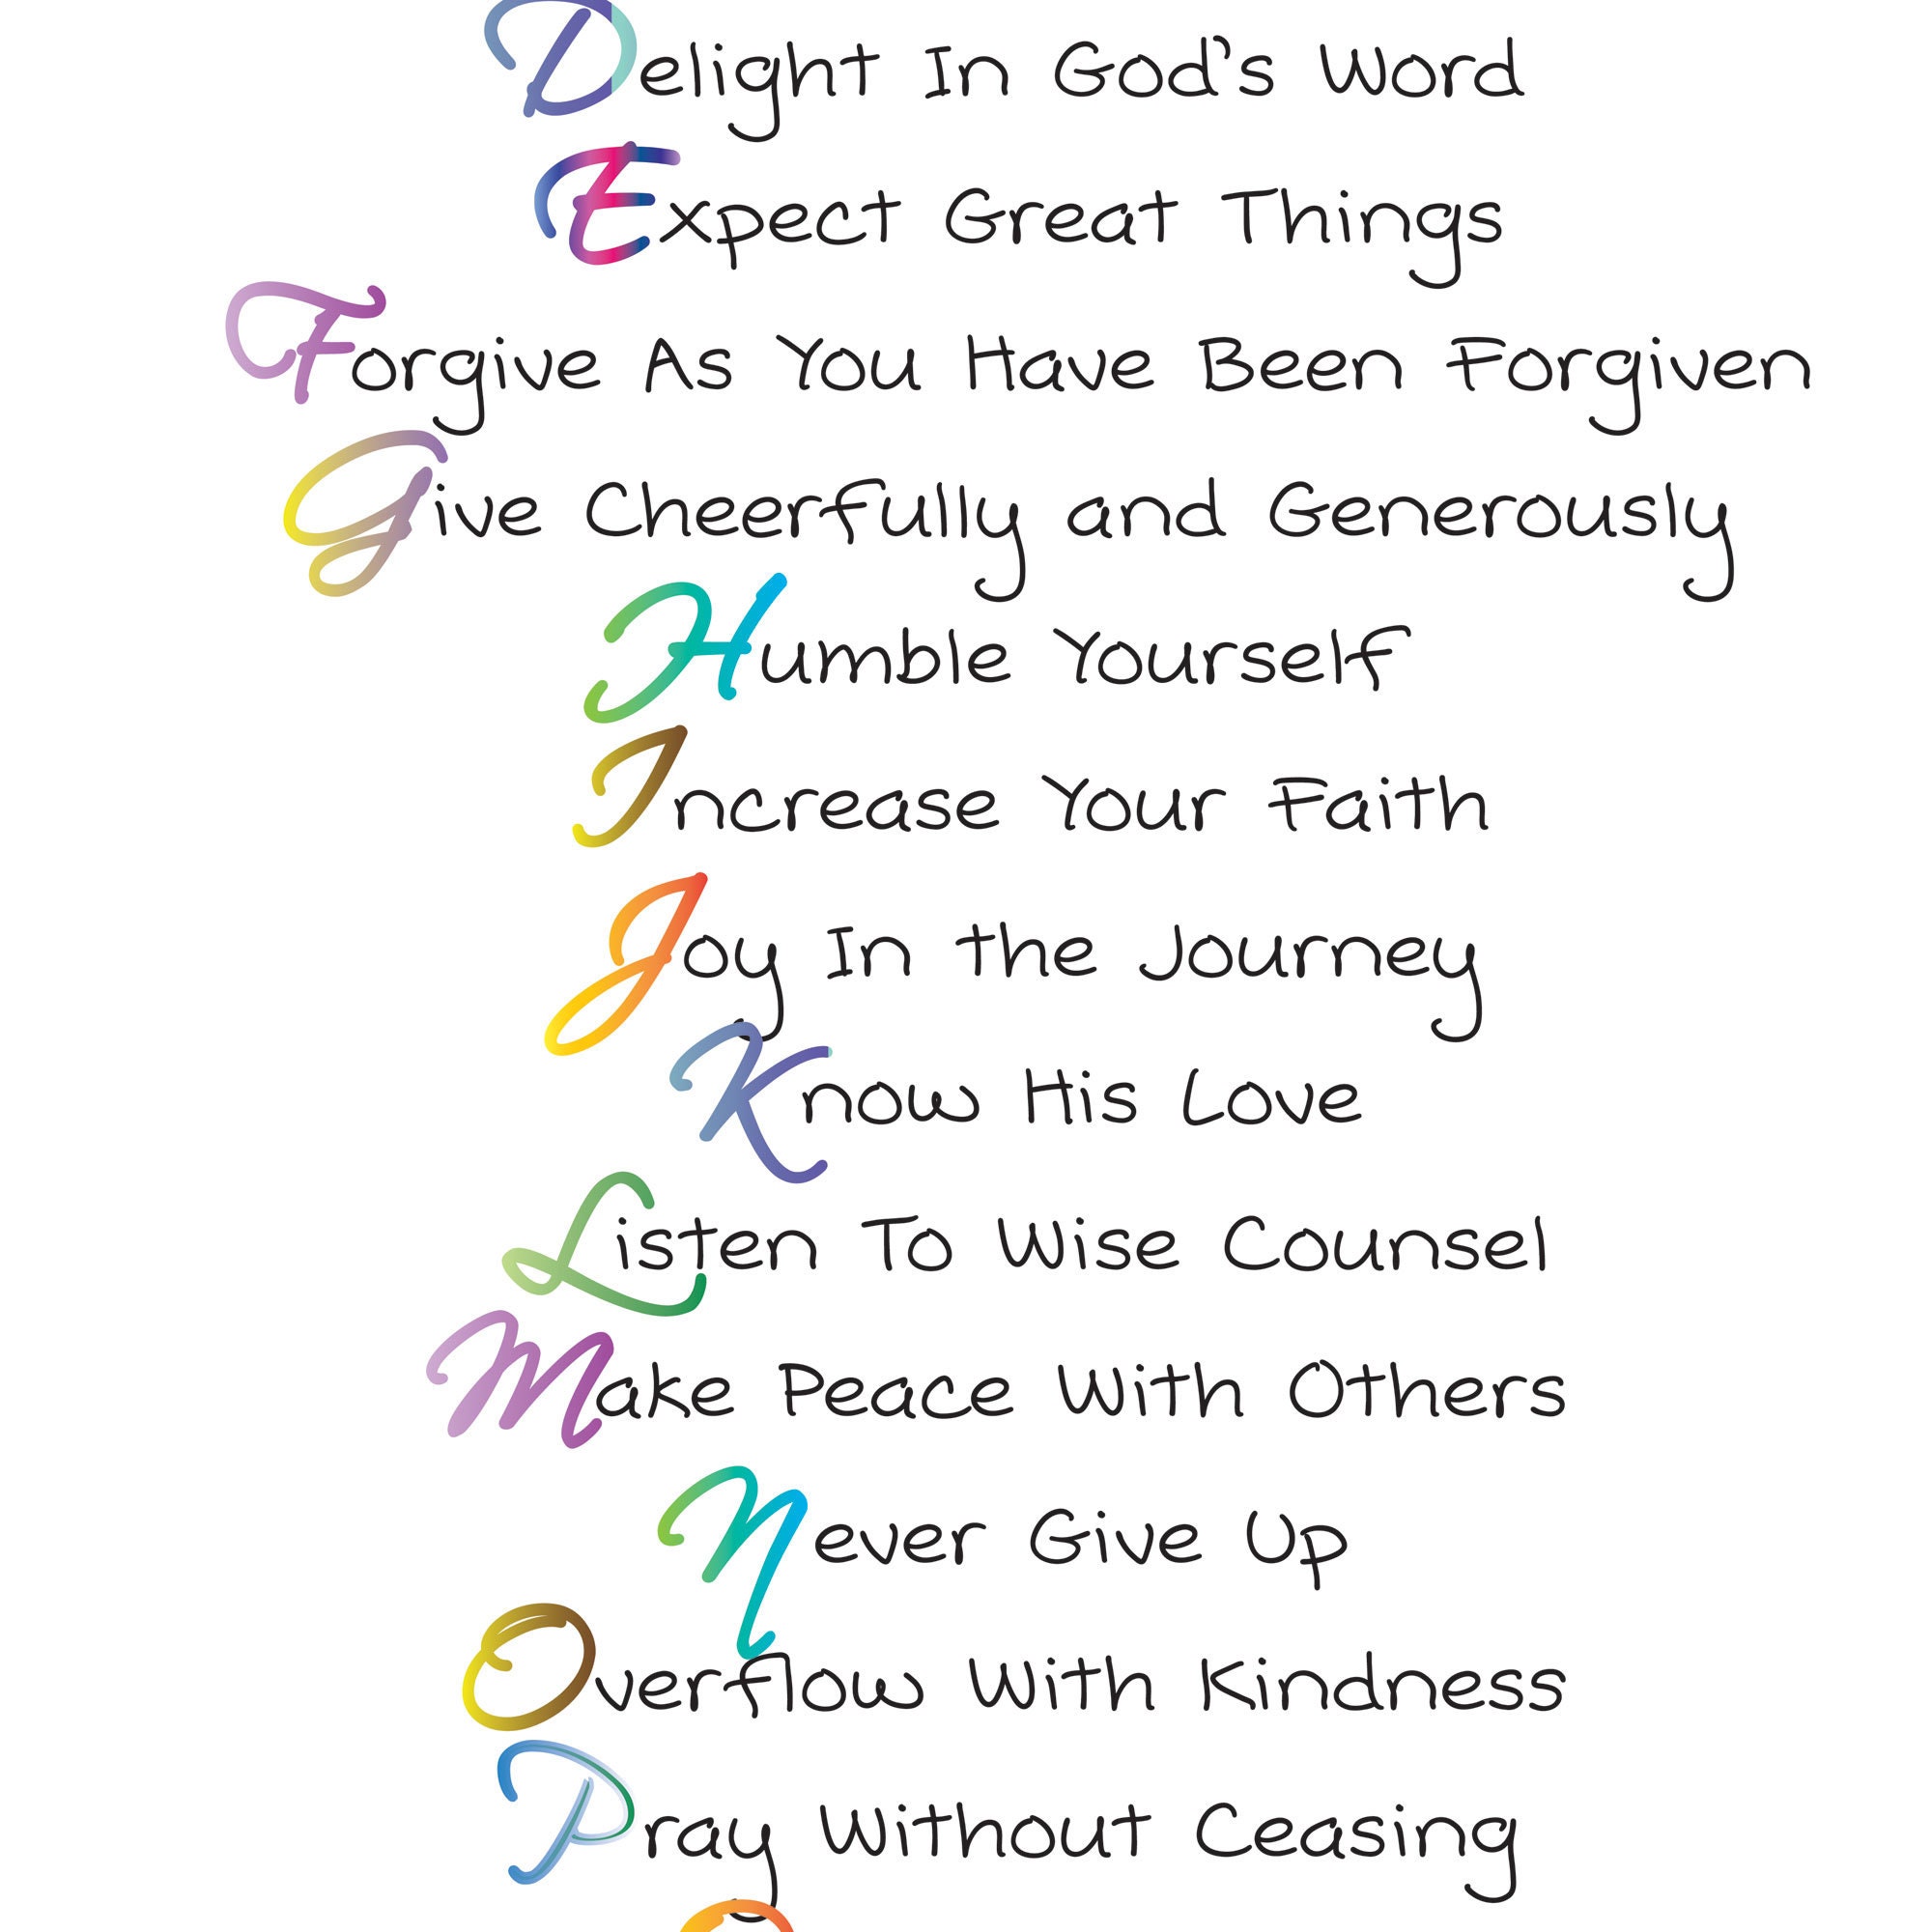 Delight In God's Word
Expect Great Things
Forgive As You Have Been Forgiven
Give Cheerfully and Generously
Humble Yourself
Increase Your Faith
Joy In the Journey
Know His Love
Listen To Wise Counsel
Make Peace With Others
Never Give Up
Overflow With Kindness
Pray Without Ceasing